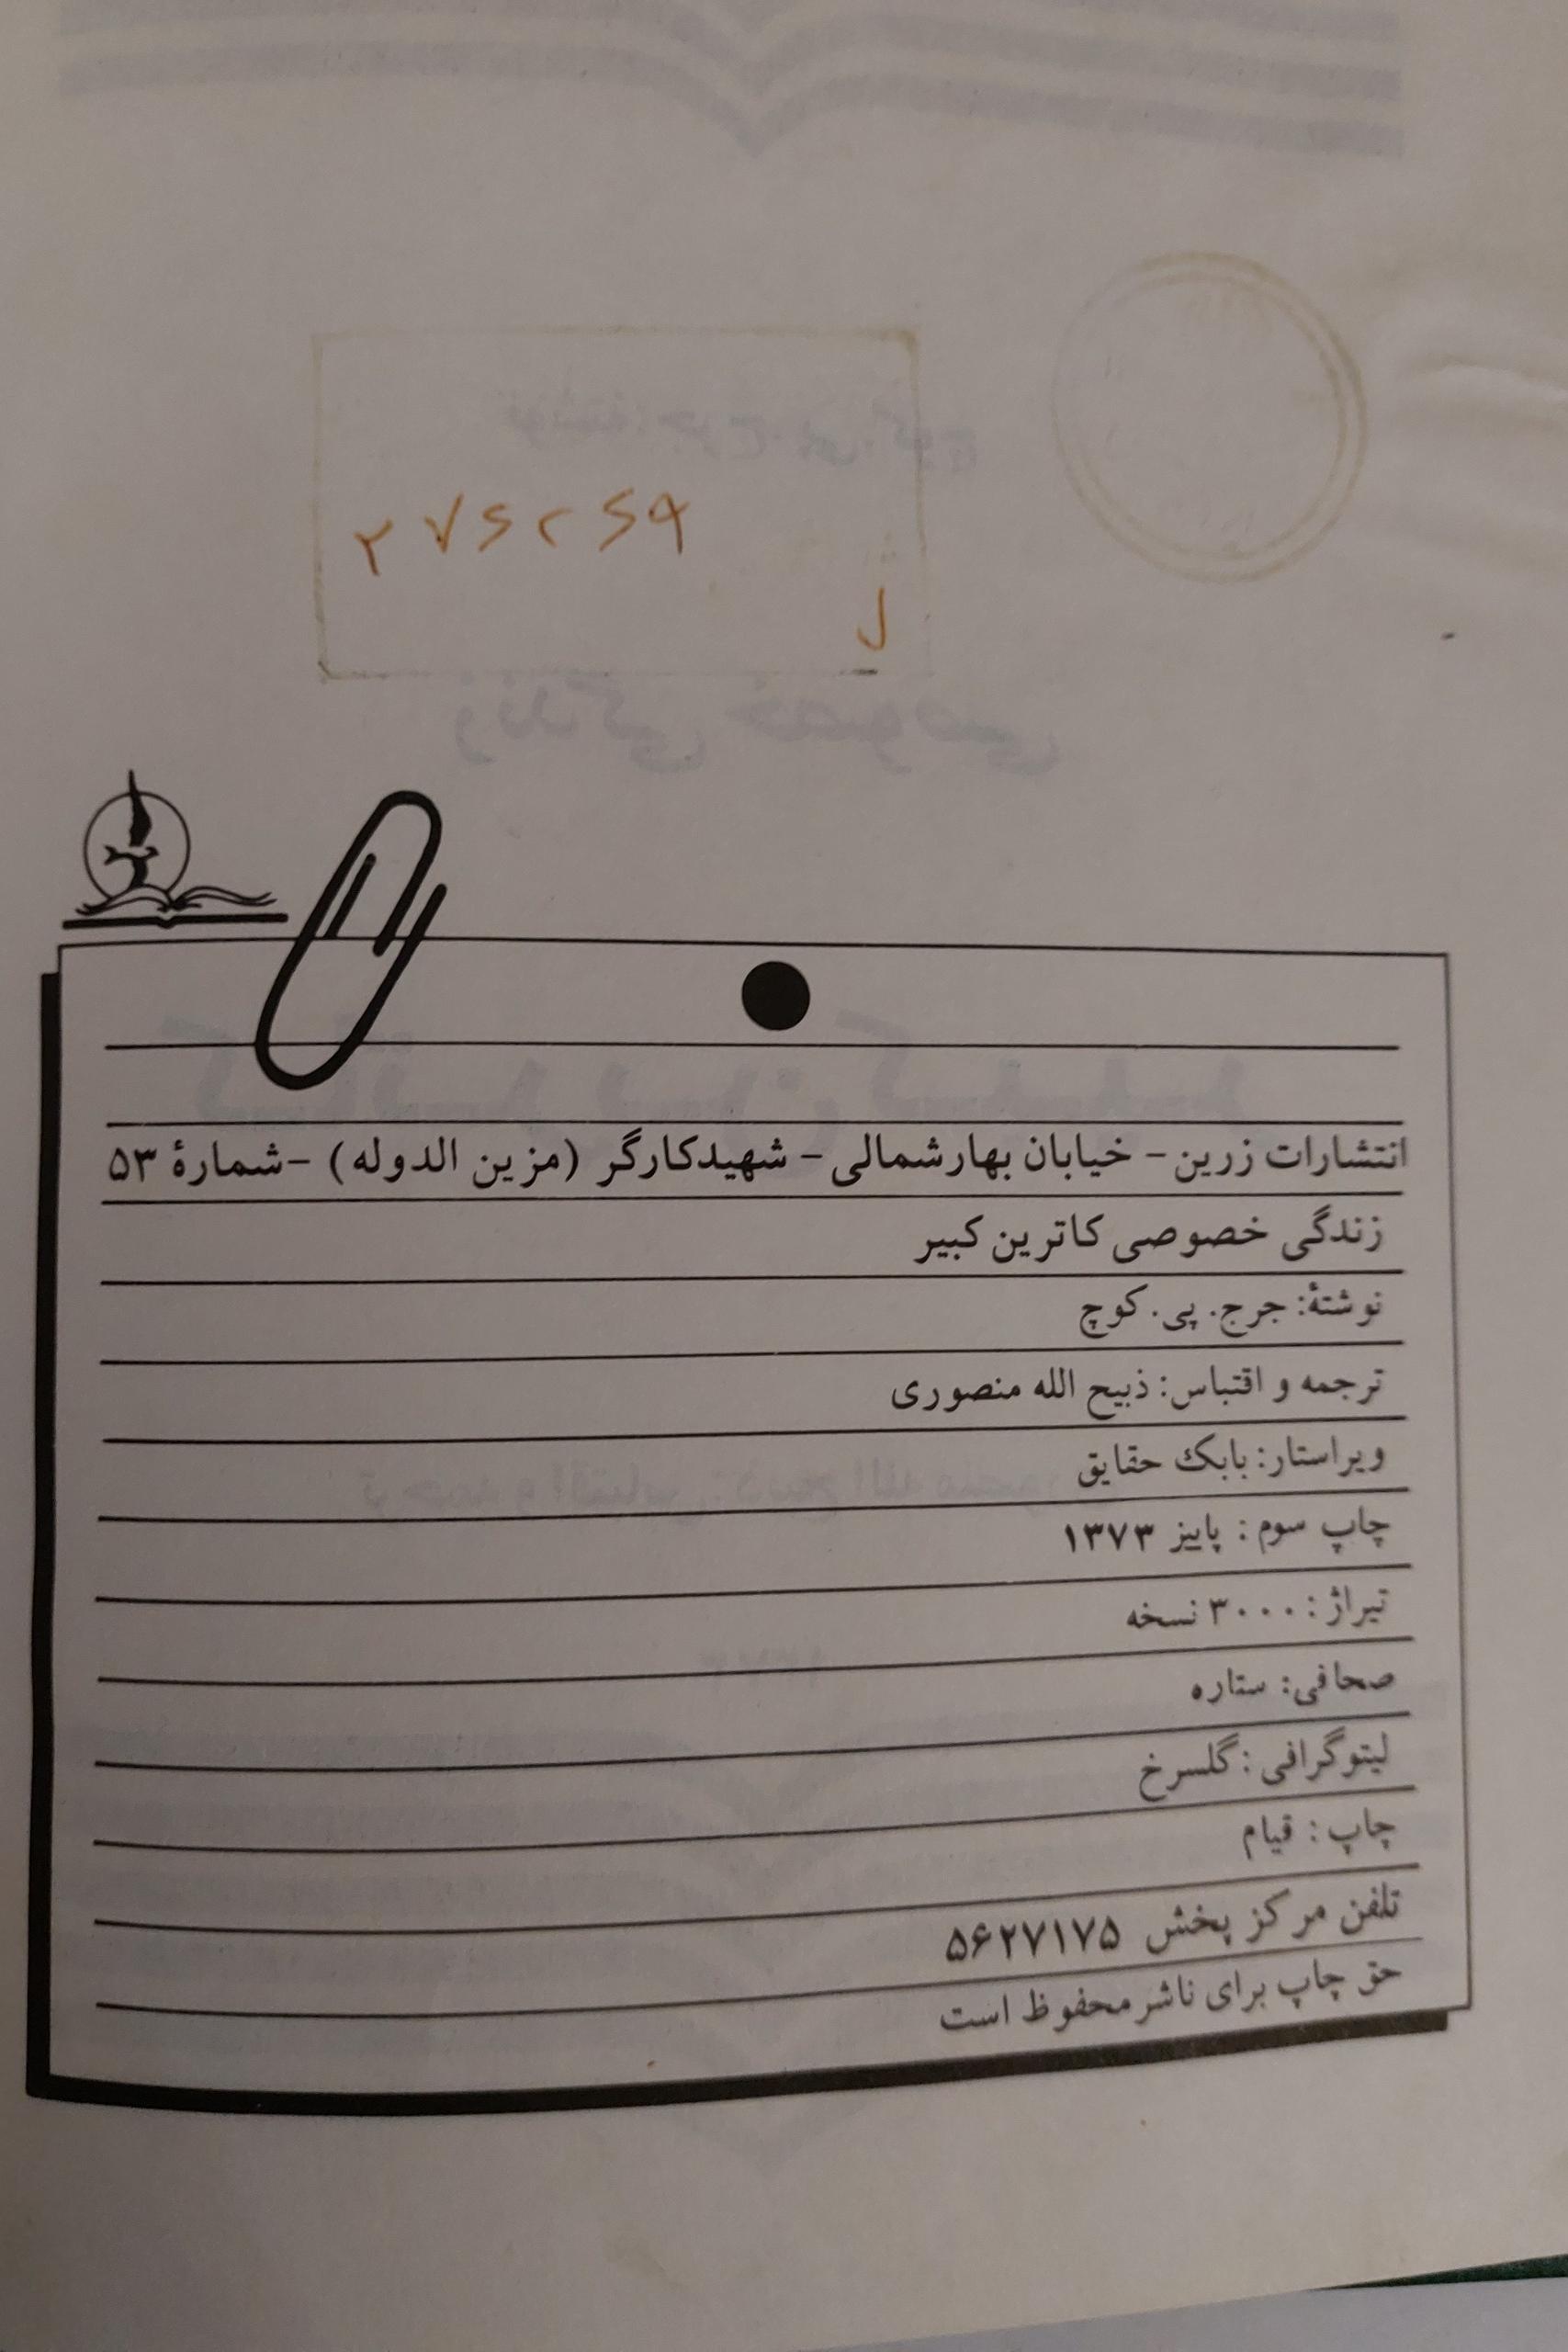 ۲۷۶۲۶۹
ل
انتشارات زرین - خیابان بهارشمالی - شهیدکارگر (مزین الدوله) - شمارهٔ ۵۳
زندگی خصوصی کاترین کبیر
نوشتهٔ: جرج. پی. کوچ
ترجمه و اقتباس: ذبیح الله منصوری
ویراستار: بابک حقایق
چاپ سوم : پاییز ۱۳۷۳
تیراژ : ۳۰۰۰ نسخه
صحافی: ستاره
لیتوگرافی : گلسرخ
چاپ : قیام
تلفن مرکز پخش ۵۶۲۷۱۷۵
حق چاپ برای ناشر محفوظ است